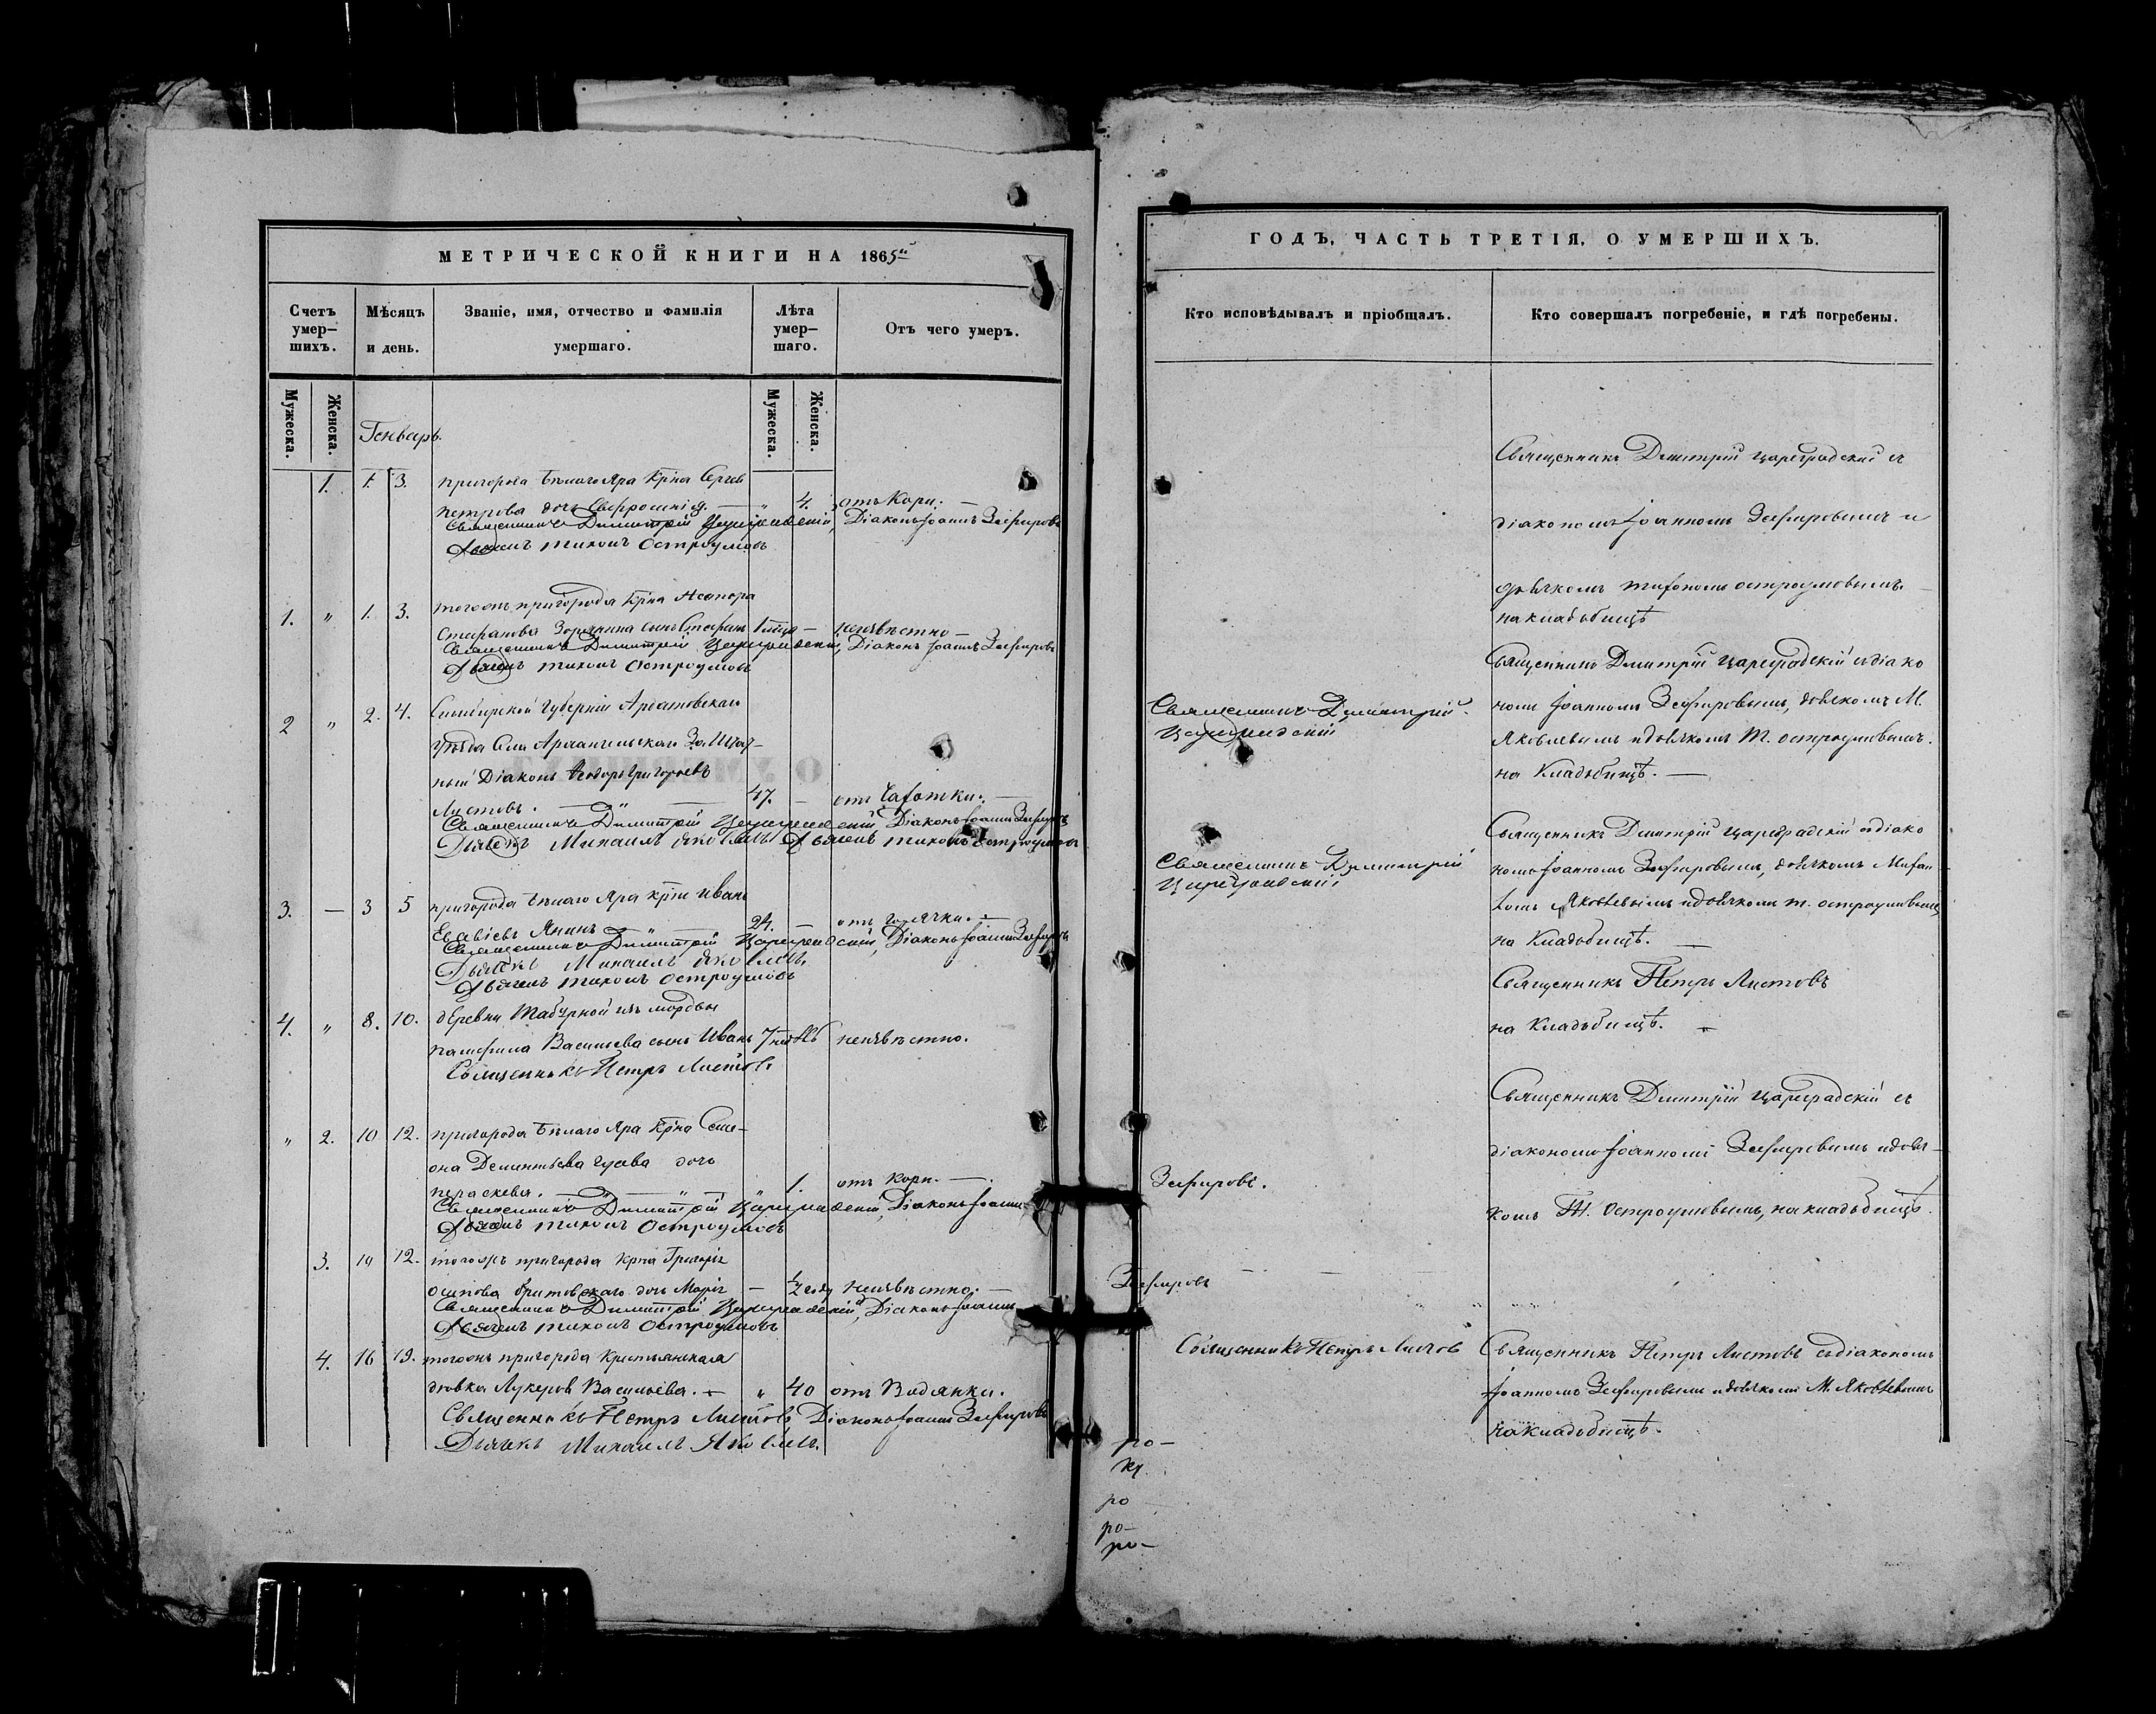 МЕТРИЧЕСКОЙ КНИГИ НА 1865й
Счетъ умер-шихъ.
Мѣсяцъ и день.
Званіе, имя, отчество и фамилія умершаго.
Лѣта умер-шаго.
Отъ чего умеръ.
Мужеска.
Женска.
Генварь.
Мужеска.
Женска.
1. 1. 3. пригорода Бѣлаго Яра Крна Сергѣя
Петрова дочь Евфросинія. — „ 4. отъ Кори. —
Священникъ Димитрій Цареградскій, Діаконъ Іоаннъ Зефировъ
Дьячекъ Тихонъ Остроумовъ
1. „ 1. 3. тогожъ пригорода Крна
Стефанова сынъ Стефанъ — неизвѣстно —
Священникъ Димитрій Цареградскій, Діаконъ Іоаннъ Зефировъ
Дьячекъ Тихонъ Остроумовъ
2 „ 2. 4. Симбирской Губерніи Ардатовскаго
уѣзда Села Архангельскаго Заштат-
ный Діаконъ Ѳеодоръ Григорьевъ
Листовъ. — „ — 47. — отъ Чахотки. —
Священникъ Димитрій Цареградскій, Діаконъ Іоаннъ Зефировъ
Дьячекъ Михаилъ Яковлевъ. Дьячекъ Тихонъ Остроумовъ
3. — 3 5 пригорода Бѣлаго Яра крнъ Иванъ
24. — отъ горячки. —
Священникъ Димитрій Цареградскій, Діаконъ Іоаннъ Зефировъ
Дьячекъ Михаилъ Яковлевъ.
Дьячекъ Тихонъ Остроумовъ
4. „ 8. 10. деревни Табурной изъ мордвы
Памфила Васильева сынъ Иванъ 7 неизвѣстно.
Священникъ Петръ Листовъ
„ 2. 10 12. пригорода Бѣлаго Яра Крна Семе-
она Дементьева Гусева дочь
Параскева. — „ — „ 1. отъ Кори. —
Священникъ Димитрій Цареградскій, Діаконъ Іоаннъ
Дьячекъ Тихонъ Остроумовъ
3. 10 12. тогожъ пригорода Крна Григорія
Осипова дочь Марія — 1/2 года неизвѣстно. —
Священникъ Димитрій Цареградскій, Діаконъ Іоаннъ
Дьячекъ Тихонъ Остроумовъ
4. 16 19. тогожъ пригорода Крестьянская
дѣвка Лукерья Васильева. — „ 40 отъ Водянки.
Священникъ Петръ Листовъ Діаконъ Іоаннъ Зефировъ
Дьячекъ Михаилъ Яковлевъ.
ГОДЪ, ЧАСТЬ ТРЕТІЯ, О УМЕРШИХЪ.
Кто исповѣдывалъ и пріобщалъ.
Кто совершалъ погребеніе, и гдѣ погребены.
Священникъ Димитрій Цареградскій съ
діакономъ Іоанномъ Зефировымъ и
дьячкомъ Тихономъ Остроумовымъ.
на кладбищѣ
Священникъ Димитрій Цареградскій съ діако
Священникъ Димитрій
номъ Іоанномъ Зефировымъ, дьячкомъ М.
Цареградскій
Яковлевымъ и дьячкомъ Т. Остроумовымъ.
на Кладбищѣ. —
Священникъ Димитрій Цареградскій съ діако
Священникъ Димитрій
Цареградскій
номъ Іоанномъ Зефировымъ, дьячкомъ Михаи
ломъ Яковлевымъ и дьячкомъ Т. Остроумовымъ
на Кладбищѣ. —
Священникъ Петръ Листовъ
на Кладбищѣ. —
Священникъ Димитрій Цареградскій съ
діакономъ Іоанномъ Зефировымъ и дьяч-
Зефировъ.
комъ Т. Остроумовымъ, на кладбищѣ.
Зефировъ
Священникъ Петръ Листовъ
Священникъ Петръ Листовъ съ діакономъ
Іоанномъ Зефировымъ и дьячкомъ М. Яковлевымъ
на кладбищѣ.
ро-
ро
ро-
ро-